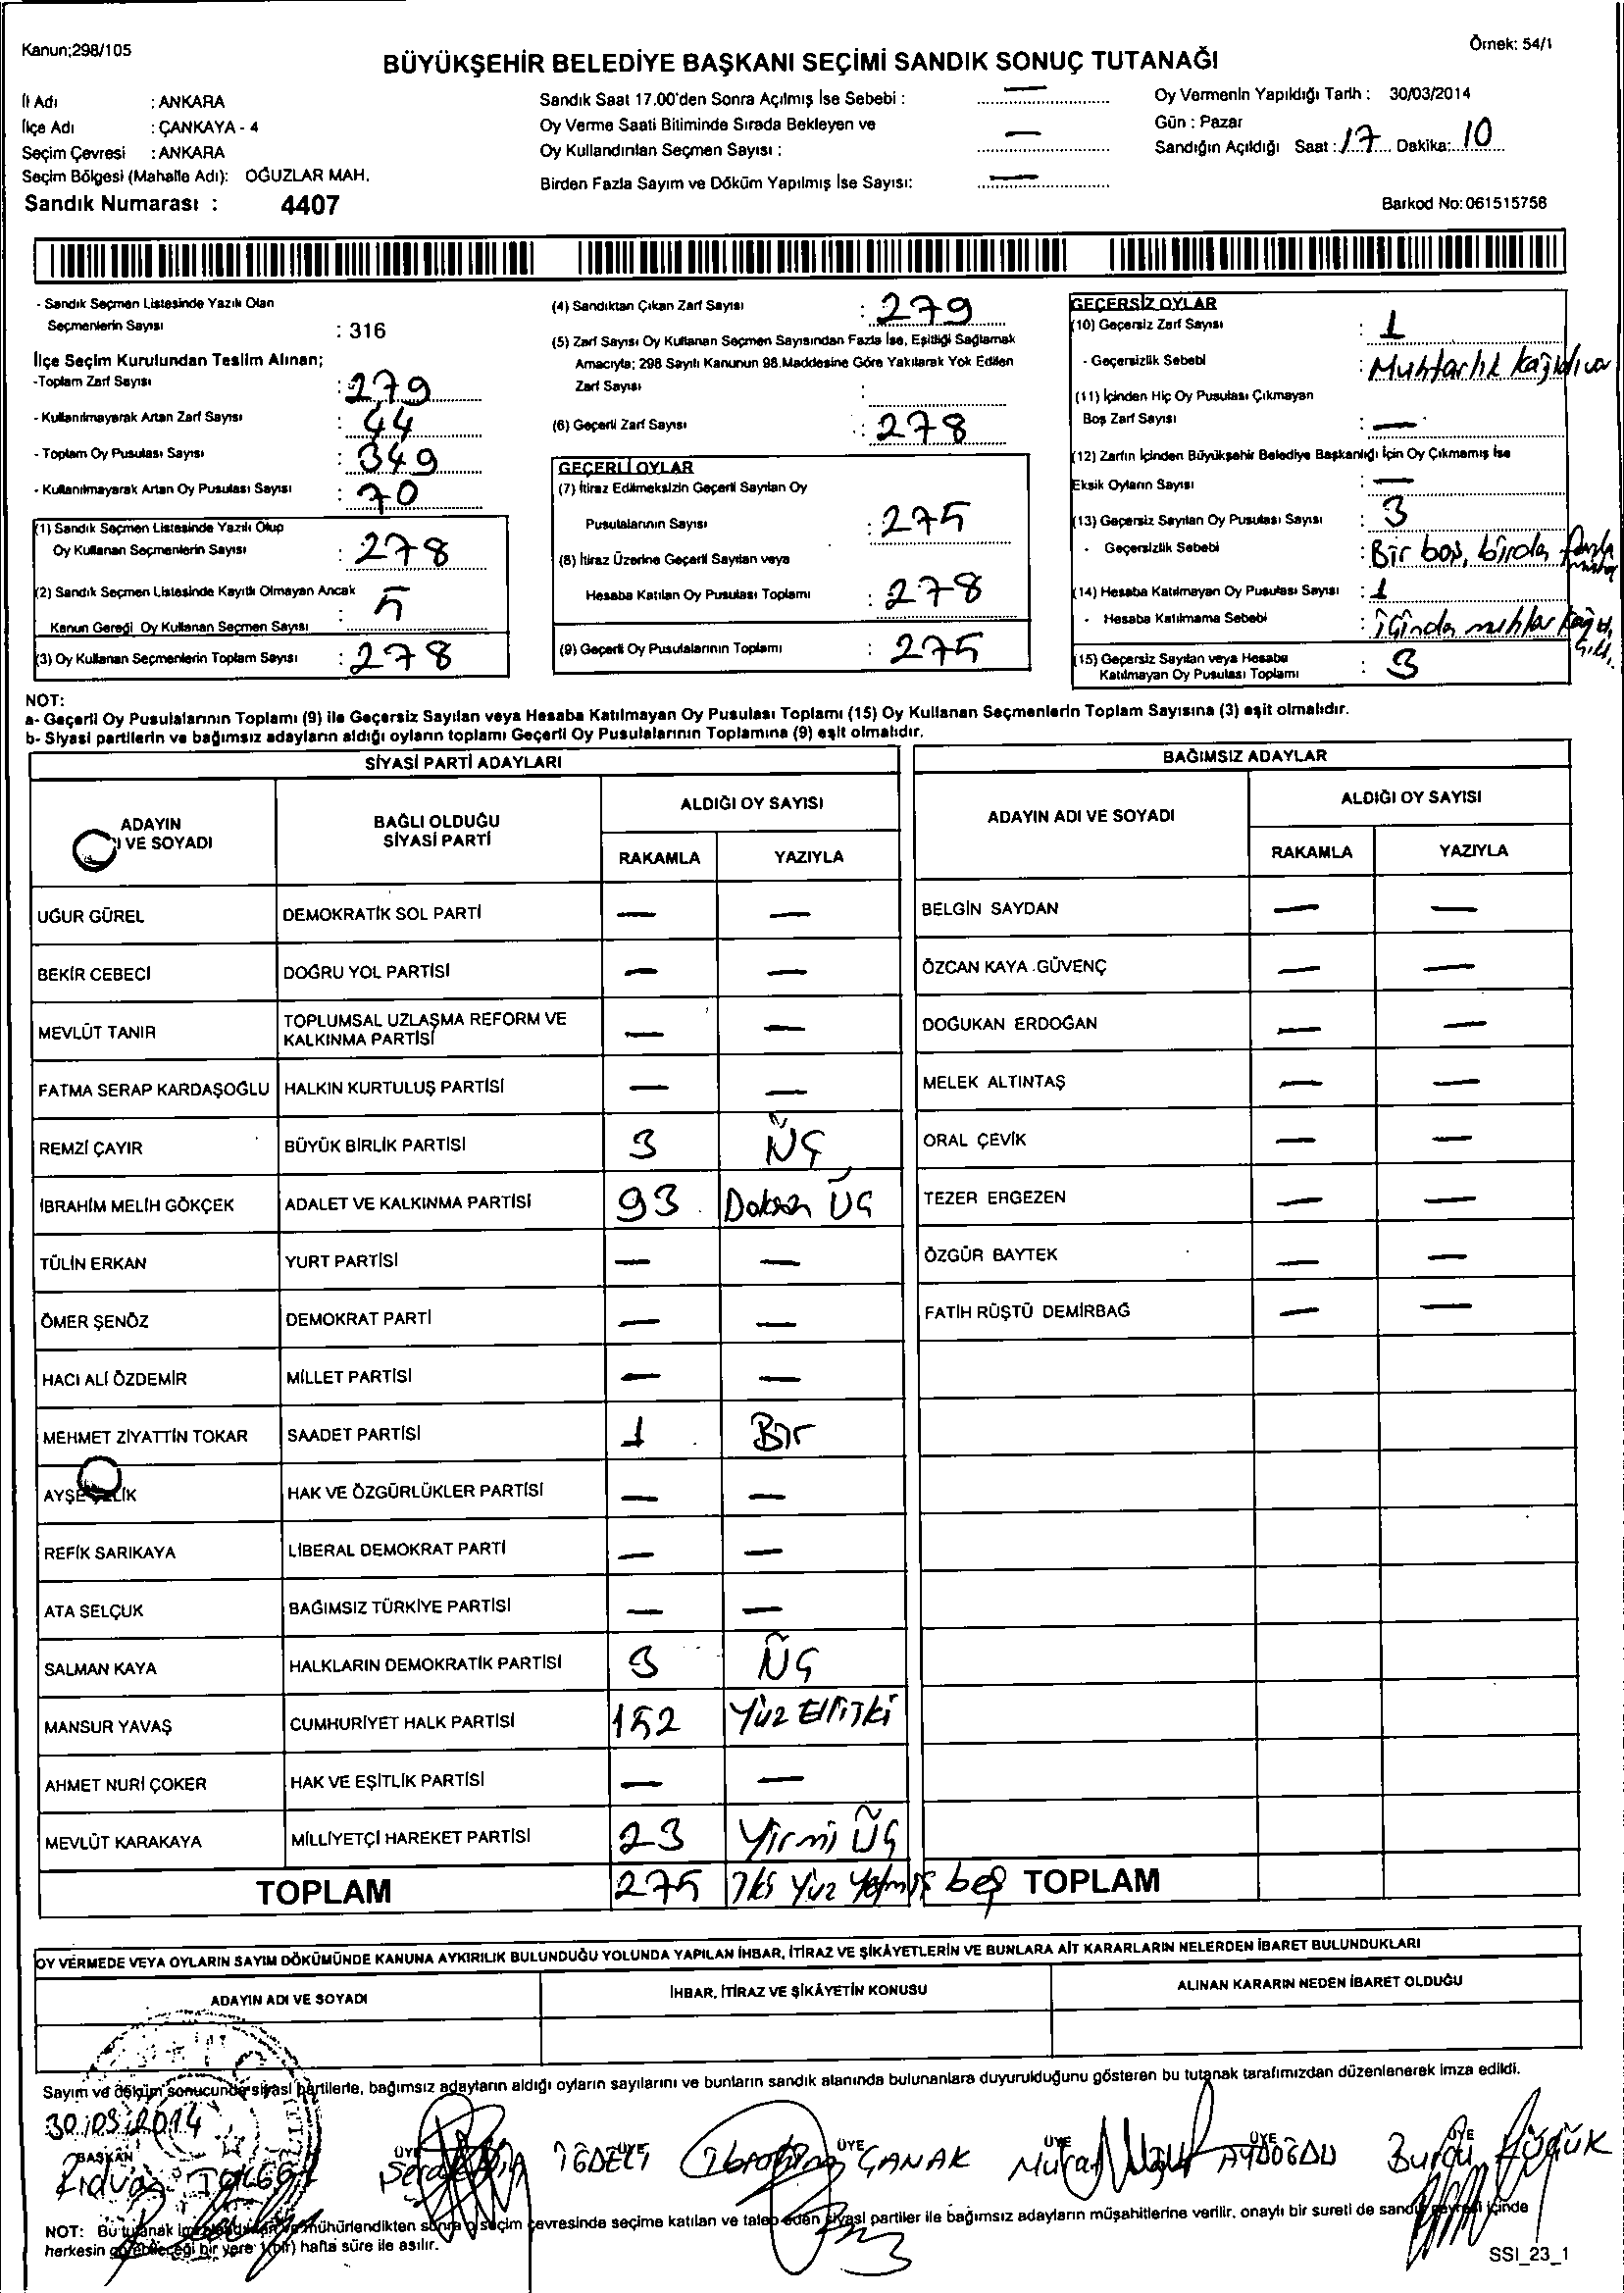 Kanun;298/105
Örnek: 54/1
BÜYÜKŞEHİR BELEDİYE BAŞKANI SEÇİMİ SANDIK SONUÇ TUTANAĞI
İl Adı : ANKARA
İlçe Adı : ÇANKAYA - 4
Seçim Çevresi : ANKARA
Seçim Bölgesi (Mahalle Adı): OĞUZLAR MAH.
Sandık Numarası : 4407
Sandık Saat 17.00'den Sonra Açılmış İse Sebebi : —
Oy Verme Saati Bitiminde Sırada Bekleyen ve
Oy Kullandırılan Seçmen Sayısı : —
Birden Fazla Sayım ve Döküm Yapılmış İse Sayısı: —
Oy Vermenin Yapıldığı Tarih : 30/03/2014
Gün : Pazar
Sandığın Açıldığı Saat : 17 Dakika: 10
Barkod No:061515758
- Sandık Seçmen Listesinde Yazılı Olan
Seçmenlerin Sayısı : 316
İlçe Seçim Kurulundan Teslim Alınan;
-Toplam Zarf Sayısı : 279
- Kullanılmayarak Artan Zarf Sayısı : 44
- Toplam Oy Pusulası Sayısı : 349
- Kullanılmayarak Artan Oy Pusulası Sayısı : 70
(1) Sandık Seçmen Listesinde Yazılı Olup
Oy Kullanan Seçmenlerin Sayısı : 278
(2) Sandık Seçmen Listesinde Kayıtlı Olmayan Ancak
Kanun Gereği Oy Kullanan Seçmen Sayısı : 5
(3) Oy Kullanan Seçmenlerin Toplam Sayısı : 278
(4) Sandıktan Çıkan Zarf Sayısı : 279
(5) Zarf Sayısı Oy Kullanan Seçmen Sayısından Fazla İse, Eşitliği Sağlamak
Amacıyla; 298 Sayılı Kanunun 98.Maddesine Göre Yakılarak Yok Edilen
Zarf Sayısı :
(6) Geçerli Zarf Sayısı : 278
GEÇERLİ OYLAR
(7) İtiraz Edilmeksizin Geçerli Sayılan Oy
Pusulalarının Sayısı : 275
(8) İtiraz Üzerine Geçerli Sayılan veya
Hesaba Katılan Oy Pusulası Toplamı : 278
(9) Geçerli Oy Pusulalarının Toplamı : 275
GEÇERSİZ OYLAR
(10) Geçersiz Zarf Sayısı : 1
- Geçersizlik Sebebi : Muhtarlık kağıdı var
(11) İçinden Hiç Oy Pusulası Çıkmayan
Boş Zarf Sayısı : —
(12) Zarfın İçinden Büyükşehir Belediye Başkanlığı İçin Oy Çıkmamış İse
Eksik Oyların Sayısı : —
(13) Geçersiz Sayılan Oy Pusulası Sayısı : 3
- Geçersizlik Sebebi : Bir boş, birda fazla
(14) Hesaba Katılmayan Oy Pusulası Sayısı : 1
- Hesaba Katılmama Sebebi : içinde muhtar kağıdı
(15) Geçersiz Sayılan veya Hesaba
Katılmayan Oy Pusulası Toplamı : 3
NOT:
a- Geçerli Oy Pusulalarının Toplamı (9) ile Geçersiz Sayılan veya Hesaba Katılmayan Oy Pusulası Toplamı (15) Oy Kullanan Seçmenlerin Toplam Sayısına (3) eşit olmalıdır.
b- Siyasi partilerin ve bağımsız adayların aldığı oyların toplamı Geçerli Oy Pusulalarının Toplamına (9) eşit olmalıdır.
SİYASİ PARTİ ADAYLARI
ADAYIN
I VE SOYADI
BAĞLI OLDUĞU
SİYASİ PARTİ
ALDIĞI OY SAYISI
RAKAMLA YAZIYLA
UĞUR GÜREL DEMOKRATİK SOL PARTİ — —
BEKİR CEBECİ DOĞRU YOL PARTİSİ — —
MEVLÜT TANIR TOPLUMSAL UZLAŞMA REFORM VE
KALKINMA PARTİSİ — —
FATMA SERAP KARDAŞOĞLU HALKIN KURTULUŞ PARTİSİ — —
REMZİ ÇAYIR BÜYÜK BİRLİK PARTİSİ 3 ÜÇ
İBRAHİM MELİH GÖKÇEK ADALET VE KALKINMA PARTİSİ 93 Doksan ÜÇ
TÜLİN ERKAN YURT PARTİSİ — —
ÖMER ŞENÖZ DEMOKRAT PARTİ — —
HACI ALİ ÖZDEMİR MİLLET PARTİSİ — —
MEHMET ZİYATTİN TOKAR SAADET PARTİSİ 1 Bir
AYŞE ÇELİK HAK VE ÖZGÜRLÜKLER PARTİSİ — —
REFİK SARIKAYA LİBERAL DEMOKRAT PARTİ — —
ATA SELÇUK BAĞIMSIZ TÜRKİYE PARTİSİ — —
SALMAN KAYA HALKLARIN DEMOKRATİK PARTİSİ 3 ÜÇ
MANSUR YAVAŞ CUMHURİYET HALK PARTİSİ 152 Yüz Elli İki
AHMET NURİ ÇOKER HAK VE EŞİTLİK PARTİSİ — —
MEVLÜT KARAKAYA MİLLİYETÇİ HAREKET PARTİSİ 23 Yirmi ÜÇ
TOPLAM 275 İki Yüz Yetmiş beş
BAĞIMSIZ ADAYLAR
ADAYIN ADI VE SOYADI
ALDIĞI OY SAYISI
RAKAMLA YAZIYLA
BELGİN SAYDAN — —
ÖZCAN KAYA GÜVENÇ — —
DOĞUKAN ERDOĞAN — —
MELEK ALTINTAŞ — —
ORAL ÇEVİK — —
TEZER ERGEZEN — —
ÖZGÜR BAYTEK — —
FATİH RÜŞTÜ DEMİRBAĞ — —
TOPLAM
OY VERMEDE VEYA OYLARIN SAYIM DÖKÜMÜNDE KANUNA AYKIRILIK BULUNDUĞU YOLUNDA YAPILAN İHBAR, İTİRAZ VE ŞİKÂYETLERİN VE BUNLARA AİT KARARLARIN NELERDEN İBARET BULUNDUKLARI
ADAYIN ADI VE SOYADI İHBAR, İTİRAZ VE ŞİKÂYETİN KONUSU ALINAN KARARIN NEDEN İBARET OLDUĞU
Sayım ve döküm sonucunda siyasi partilerle, bağımsız adayların aldığı oyların sayılarını ve bunların sandık alanında bulunanlara duyurulduğunu gösteren bu tutanak tarafımızdan düzenlenerek imza edildi.
30/03/2014
BAŞKAN ÜYE ÜYE ÜYE ÜYE ÜYE ÜYE
Rıdvan İĞDECİ İbrahim ÇANAK Murat AYDOĞDU Burcu
NOT: Bu tutanak imzalandıktan ve mühürlendikten sonra o seçim çevresinde seçime katılan ve talep eden siyasi partiler ile bağımsız adayların müşahitlerine verilir. onaylı bir sureti de sandık çevresi içinde
herkesin görebileceği bir yere 1(bir) hafta süre ile asılır.
SSI_23_1